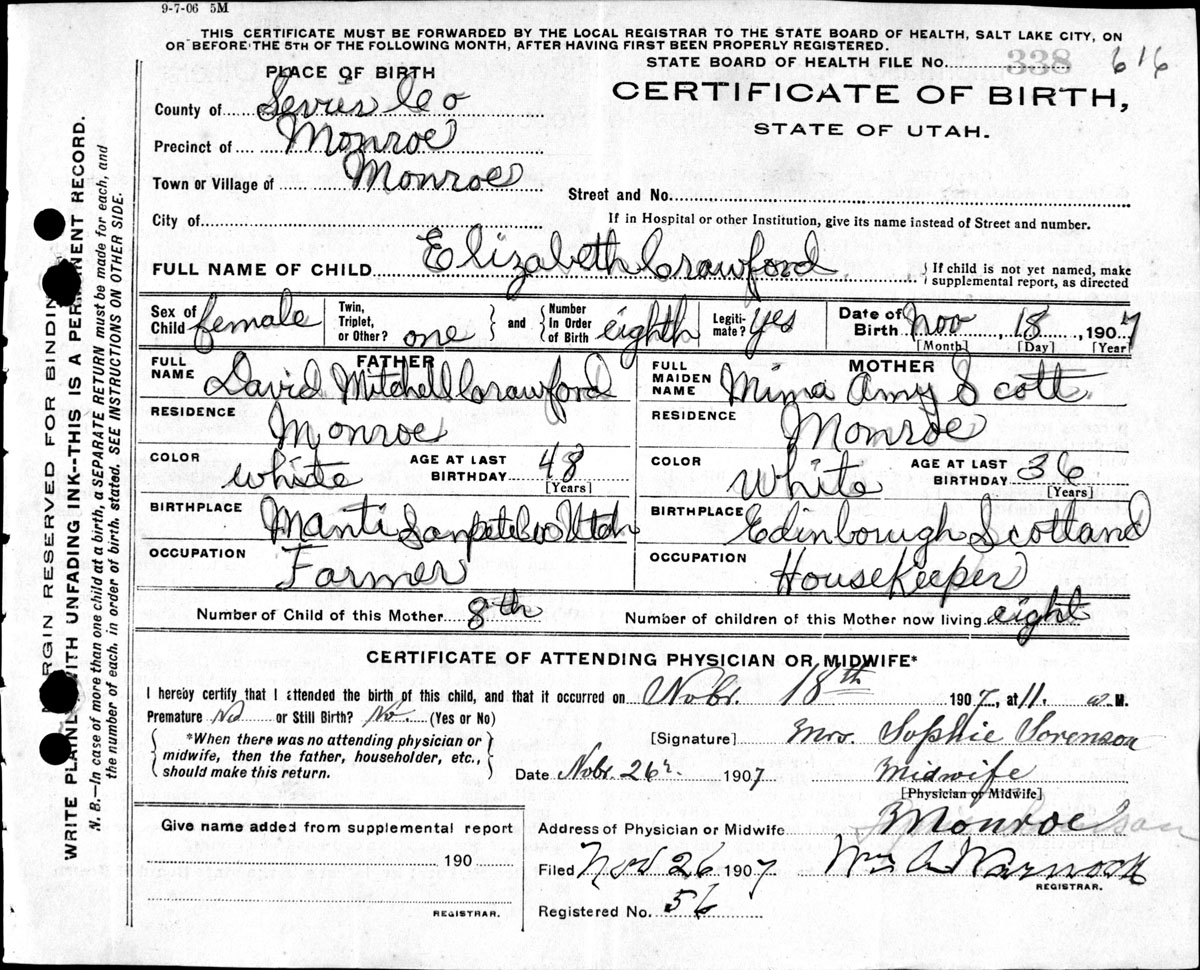 9-7-06 5M
THIS CERTIFICATE MUST BE FORWARDED BY THE LOCAL REGISTRAR TO THE STATE BOARD OF HEALTH, SALT LAKE CITY, ON
OR BEFORE THE 5TH OF THE FOLLOWING MONTH, AFTER HAVING FIRST BEEN PROPERLY REGISTERED.
STATE BOARD OF HEALTH FILE No. 338 616
PLACE OF BIRTH
CERTIFICATE OF BIRTH,
STATE OF UTAH.
County of Sevier Co
Precinct of Monroe
Town or Village of Monroe
Street and No.
City of
If in Hospital or other Institution, give its name instead of Street and number.
FULL NAME OF CHILD Elizabeth Crawford
If child is not yet named, make
supplemental report, as directed
Sex of Child female Twin, Triplet, or Other? one and Number In Order of Birth eighth Legiti-mate? yes Date of Birth Nov 18, 1907
[Month] [Day] [Year]
FATHER
FULL NAME David Mitchell Crawford
RESIDENCE Monroe
COLOR white AGE AT LAST BIRTHDAY 48 [Years]
BIRTHPLACE Manti Sanpete Co Utah
OCCUPATION Farmer
MOTHER
FULL MAIDEN NAME Mima Amy Scott
RESIDENCE Monroe
COLOR White AGE AT LAST BIRTHDAY 36 [Years]
BIRTHPLACE Edinborough Scotland
OCCUPATION HouseKeeper
Number of Child of this Mother 8th Number of children of this Mother now living eight
CERTIFICATE OF ATTENDING PHYSICIAN OR MIDWIFE*
I hereby certify that I attended the birth of this child, and that it occurred on Nobr. 18th 1907, at 11. a M.
Premature No or Still Birth? No. (Yes or No)
*When there was no attending physician or
midwife, then the father, householder, etc.,
should make this return.
[Signature] Mrs. Sophie Sorenson
Date Nobr. 26 1907 Midwife
[Physician or Midwife]
Give name added from supplemental report
190
REGISTRAR.
Address of Physician or Midwife Monroe
Filed Nov 26 1907 Wm A Warnock
REGISTRAR.
Registered No. 56
MARGIN RESERVED FOR BINDING
WRITE PLAINLY WITH UNFADING INK--THIS IS A PERMANENT RECORD.
N. B.—In case of more than one child at a birth, a SEPARATE RETURN must be made for each, and
the number of each, in order of birth, stated. SEE INSTRUCTIONS ON OTHER SIDE.